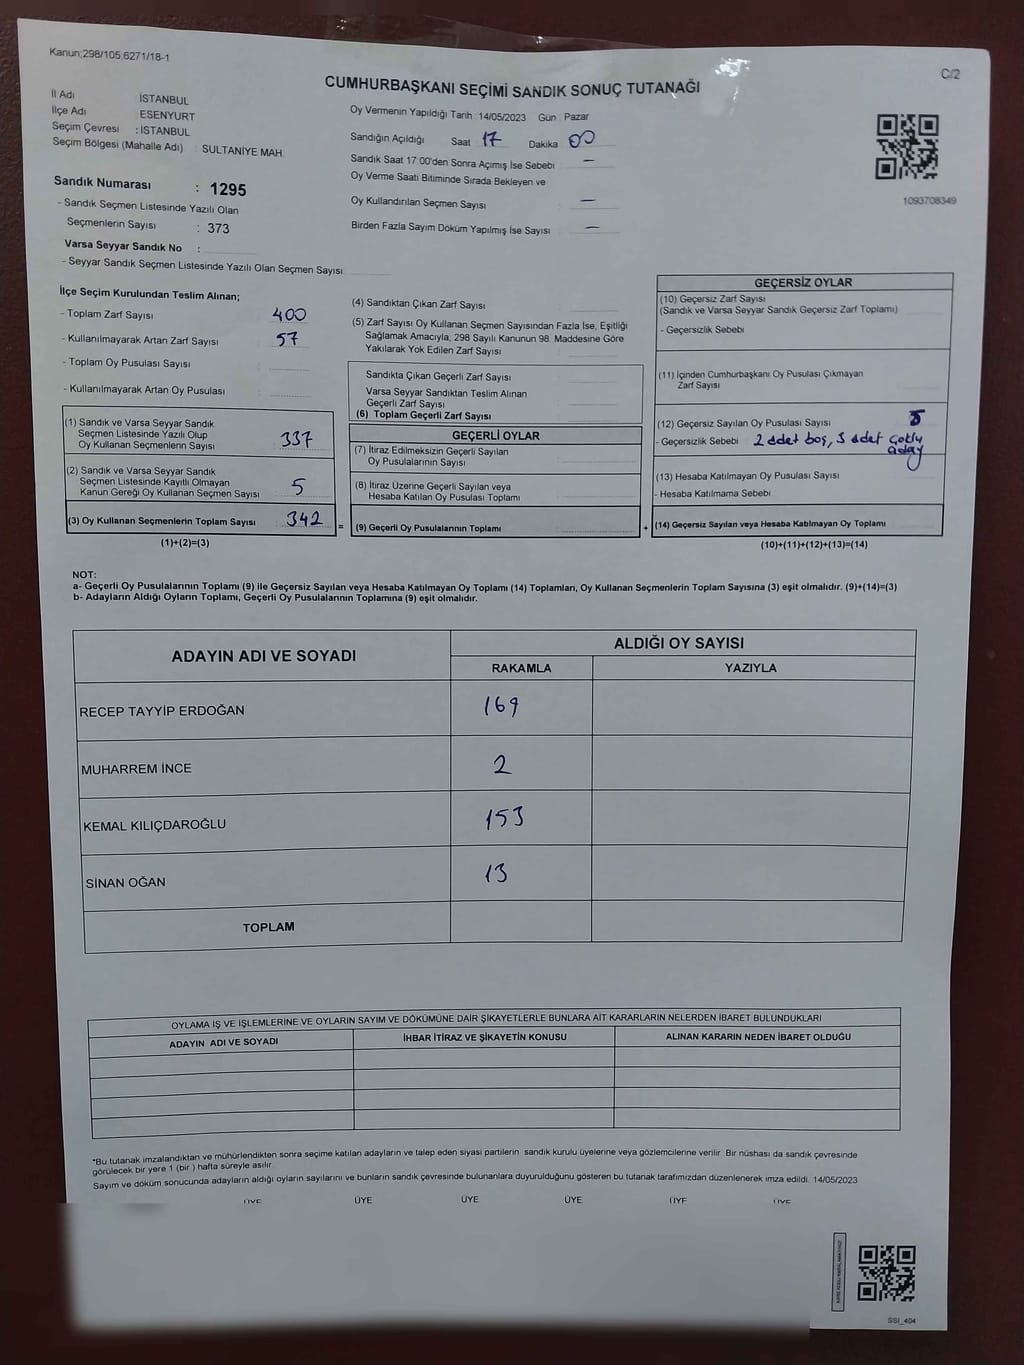 Kanun;298/105;6271/18-1
C/2
CUMHURBAŞKANI SEÇİMİ SANDIK SONUÇ TUTANAĞI
İl Adı İSTANBUL
İlçe Adı ESENYURT
Seçim Çevresi : İSTANBUL
Seçim Bölgesi (Mahalle Adı) : SULTANİYE MAH.
Sandık Numarası : 1295
- Sandık Seçmen Listesinde Yazılı Olan
Seçmenlerin Sayısı : 373
Varsa Seyyar Sandık No :
- Seyyar Sandık Seçmen Listesinde Yazılı Olan Seçmen Sayısı:
Oy Vermenin Yapıldığı Tarih 14/05/2023 Gün Pazar
Sandığın Açıldığı Saat 17 Dakika 00
Sandık Saat 17:00'den Sonra Açımış İse Sebebi —
Oy Verme Saati Bitiminde Sırada Bekleyen ve
Oy Kullandırılan Seçmen Sayısı —
Birden Fazla Sayım Döküm Yapılmış İse Sayısı —
1093708349
İlçe Seçim Kurulundan Teslim Alınan;
- Toplam Zarf Sayısı 400
- Kullanılmayarak Artan Zarf Sayısı 57
- Toplam Oy Pusulası Sayısı
- Kullanılmayarak Artan Oy Pusulası
(1) Sandık ve Varsa Seyyar Sandık
Seçmen Listesinde Yazılı Olup
Oy Kullanan Seçmenlerin Sayısı 337
(2) Sandık ve Varsa Seyyar Sandık
Seçmen Listesinde Kayıtlı Olmayan
Kanun Gereği Oy Kullanan Seçmen Sayısı 5
(3) Oy Kullanan Seçmenlerin Toplam Sayısı 342 =
(1)+(2)=(3)
(4) Sandıktan Çıkan Zarf Sayısı
(5) Zarf Sayısı Oy Kullanan Seçmen Sayısından Fazla İse, Eşitliği
Sağlamak Amacıyla, 298 Sayılı Kanunun 98. Maddesine Göre
Yakılarak Yok Edilen Zarf Sayısı
Sandıkta Çıkan Geçerli Zarf Sayısı
Varsa Seyyar Sandıktan Teslim Alınan
Geçerli Zarf Sayısı
(6) Toplam Geçerli Zarf Sayısı
GEÇERLİ OYLAR
(7) İtiraz Edilmeksizin Geçerli Sayılan
Oy Pusulalarının Sayısı
(8) İtiraz Üzerine Geçerli Sayılan veya
Hesaba Katılan Oy Pusulası Toplamı
(9) Geçerli Oy Pusulalarının Toplamı +
GEÇERSİZ OYLAR
(10) Geçersiz Zarf Sayısı
(Sandık ve Varsa Seyyar Sandık Geçersiz Zarf Toplamı)
- Geçersizlik Sebebi
(11) İçinden Cumhurbaşkanı Oy Pusulası Çıkmayan
Zarf Sayısı
(12) Geçersiz Sayılan Oy Pusulası Sayısı 5
- Geçersizlik Sebebi 2 adet boş, 3 adet çoklu
aday
(13) Hesaba Katılmayan Oy Pusulası Sayısı
- Hesaba Katılmama Sebebi
(14) Geçersiz Sayılan veya Hesaba Katılmayan Oy Toplamı
(10)+(11)+(12)+(13)=(14)
NOT:
a- Geçerli Oy Pusulalarının Toplamı (9) ile Geçersiz Sayılan veya Hesaba Katılmayan Oy Toplamı (14) Toplamları, Oy Kullanan Seçmenlerin Toplam Sayısına (3) eşit olmalıdır. (9)+(14)=(3)
b- Adayların Aldığı Oyların Toplamı, Geçerli Oy Pusulalarının Toplamına (9) eşit olmalıdır.
ADAYIN ADI VE SOYADI
ALDIĞI OY SAYISI
RAKAMLA YAZIYLA
RECEP TAYYİP ERDOĞAN 169
MUHARREM İNCE 2
KEMAL KILIÇDAROĞLU 153
SİNAN OĞAN 13
TOPLAM
OYLAMA İŞ VE İŞLEMLERİNE VE OYLARIN SAYIM VE DÖKÜMÜNE DAİR ŞİKAYETLERLE BUNLARA AİT KARARLARIN NELERDEN İBARET BULUNDUKLARI
ADAYIN ADI VE SOYADI İHBAR İTİRAZ VE ŞİKAYETİN KONUSU ALINAN KARARIN NEDEN İBARET OLDUĞU
*Bu tutanak imzalandıktan ve mühürlendikten sonra seçime katılan adayların ve talep eden siyasi partilerin sandık kurulu üyelerine veya gözlemcilerine verilir. Bir nüshası da sandık çevresinde
görülecek bir yere 1 (bir) hafta süreyle asılır.
Sayım ve döküm sonucunda adayların aldığı oyların sayılarını ve bunların sandık çevresinde bulunanlara duyurulduğunu gösteren bu tutanak tarafımızdan düzenlenerek imza edildi. 14/05/2023
ÜYE ÜYE ÜYE ÜYE ÜYE ÜYE
SSI_404